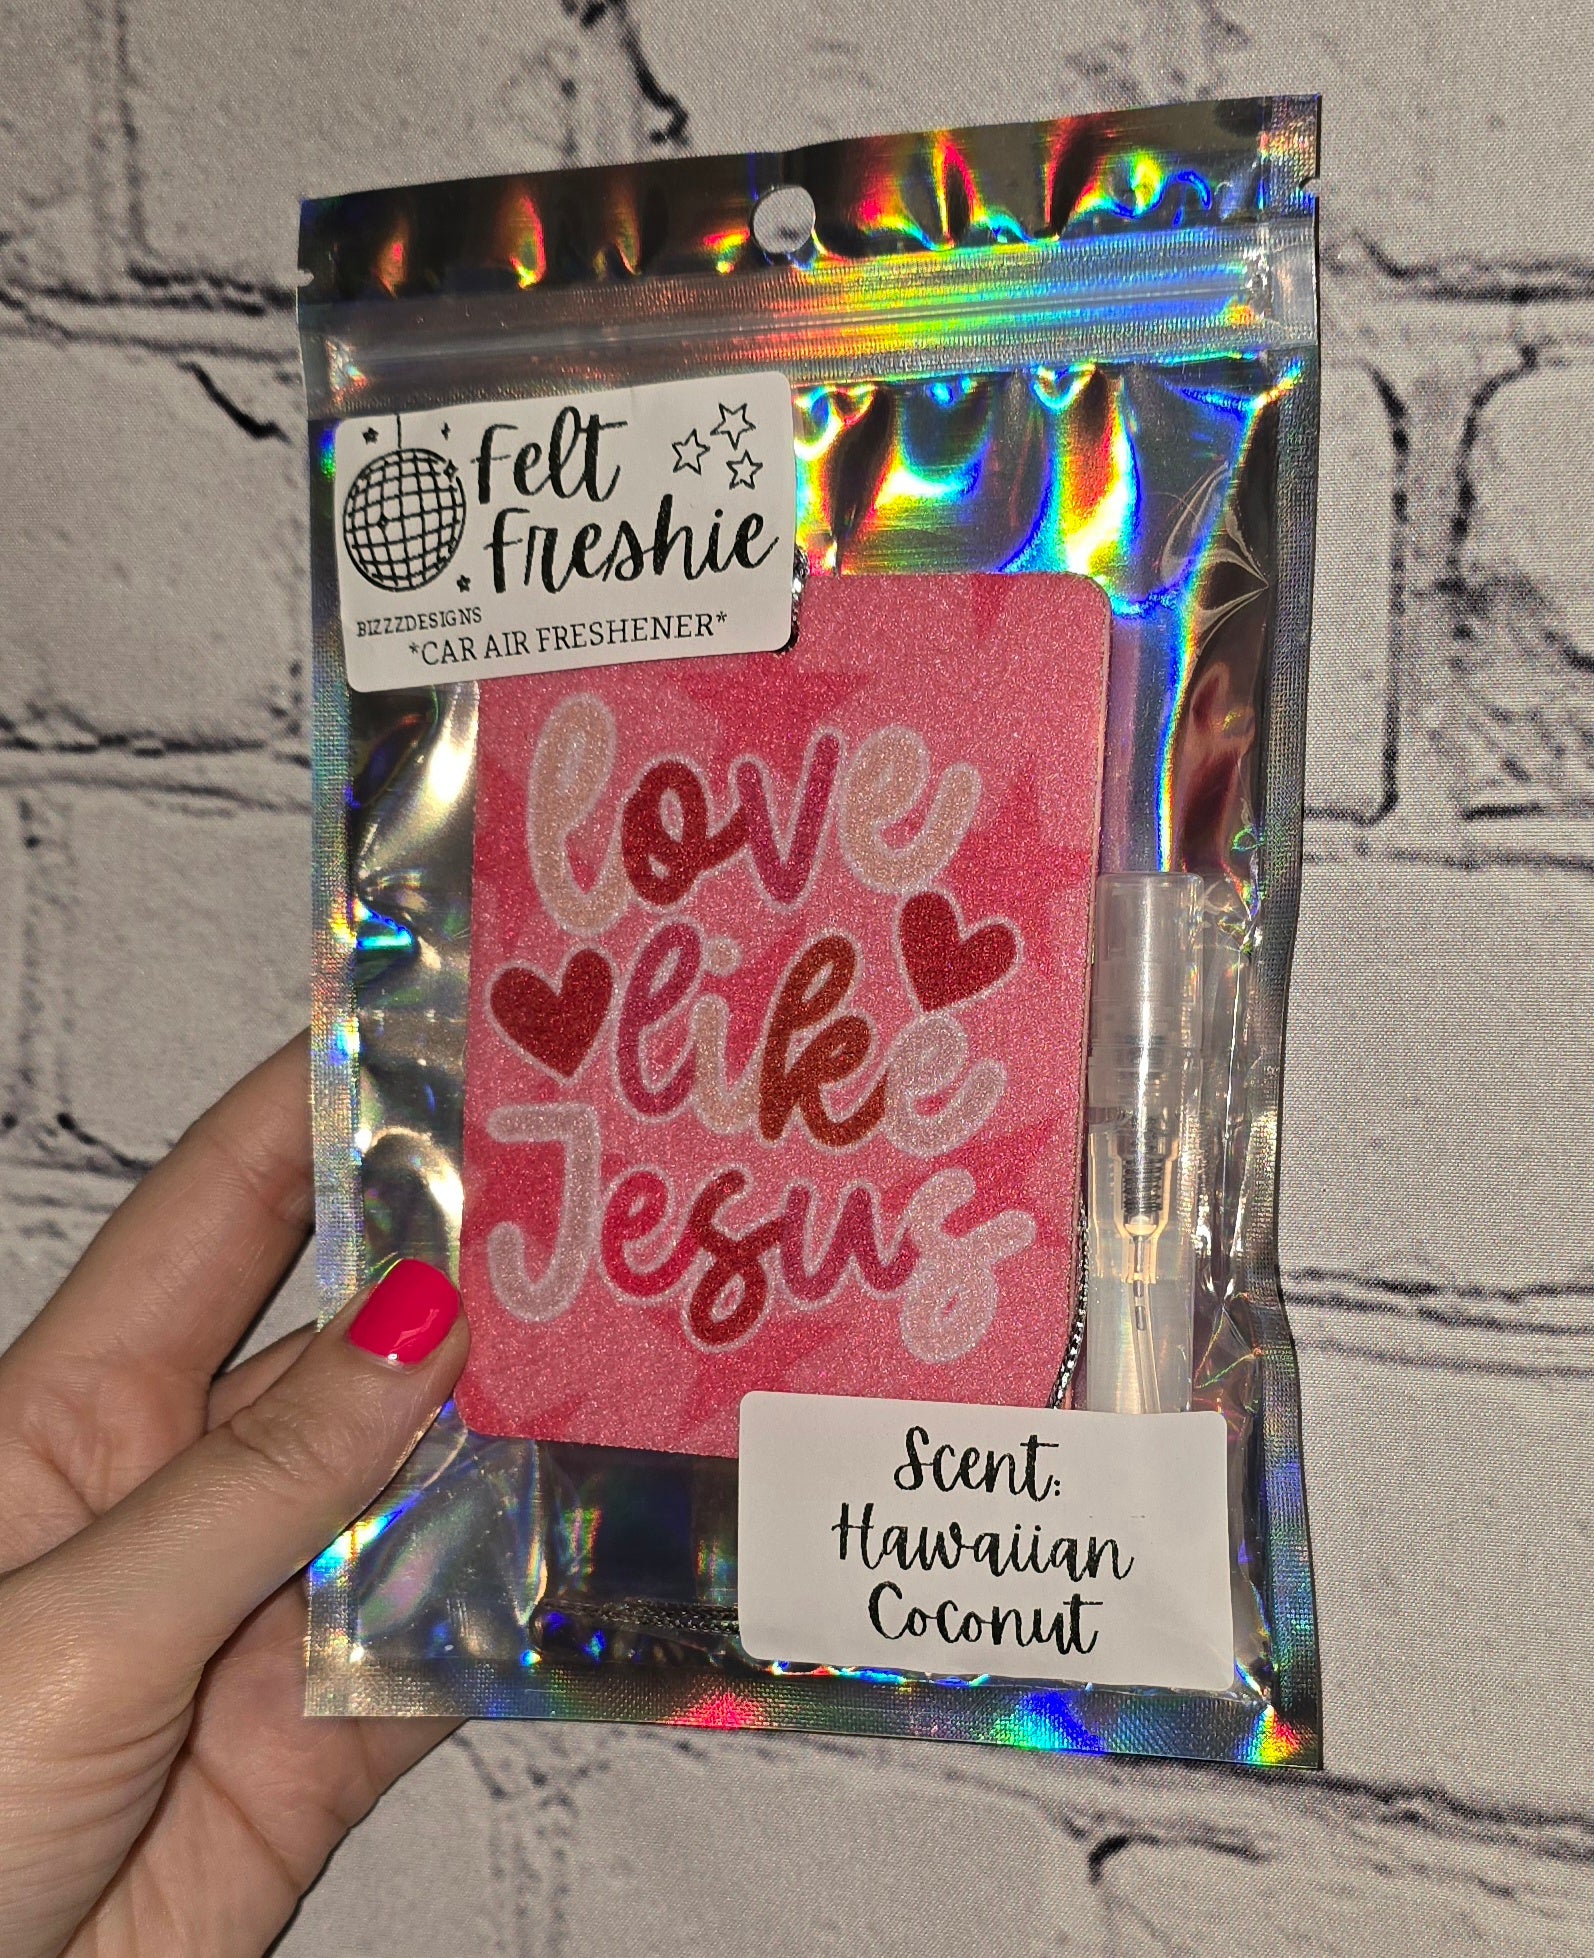 Felt
Freshie
BIZZZDESIGNS
*CAR AIR FRESHENER*
love
like
Jesus
Scent:
Hawaiian
Coconut